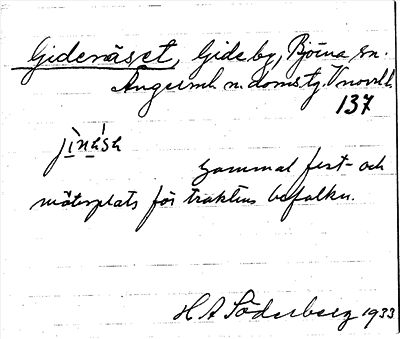 Gidenäset, Gide by, Björna sn.
Ångerml. n. domstg. Vnorrl. l.
137
jìnǽsə
Gammal fest- och
mötesplats för traktens befolkn.
H A Söderberg 1933